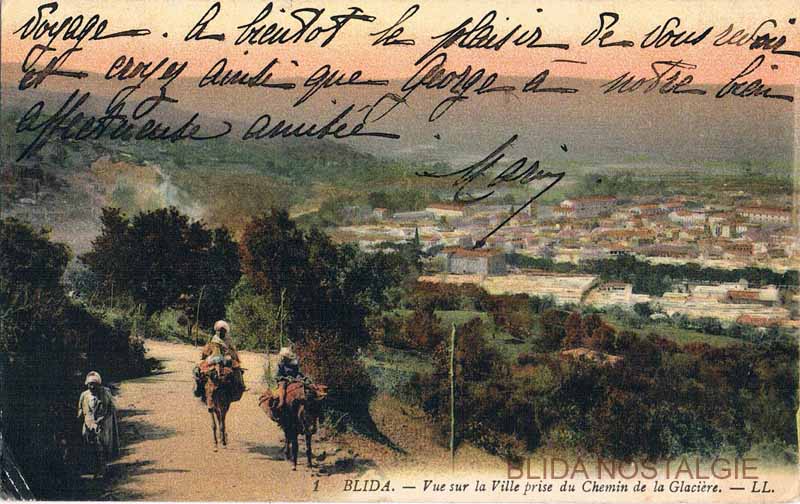 voyage. A bientôt le plaisir de vous revoir
et croyez ainsi que George à notre bien
affectueuse amitié.
Marie
BLIDA NOSTALGIE
1 BLIDA. — Vue sur la Ville prise du Chemin de la Glacière. — LL.